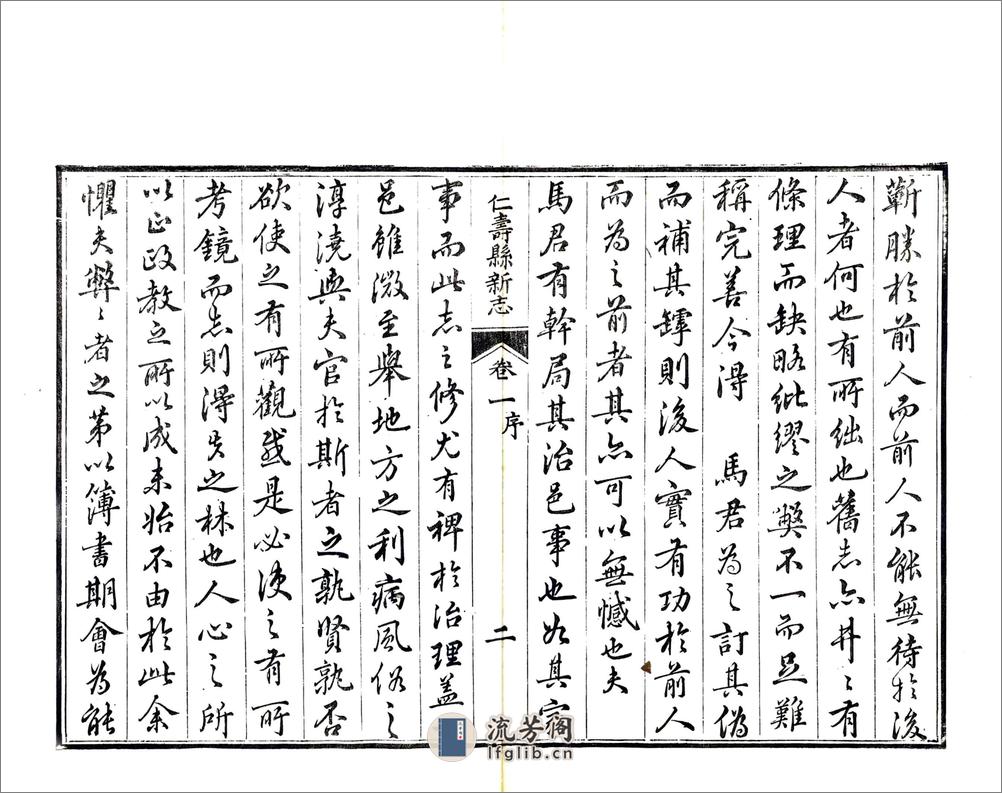 蘄勝於前人而前人不能無待於後
人者何也有所絀也舊志亦井〻有
條理而缺略紕繆之弊不一而足難
稱完善今得 馬君為之訂其偽
而補其罅則後人實有功於前人
而為之前者其亦可以無憾也夫
馬君有幹局其治邑事也如其家
仁壽縣新志 卷一 序 二
事而此志之修尤有裨於治理蓋
邑雖微至舉地方之利病風俗之
淳澆與夫官於斯者之孰賢孰否
欲使之有所觀感是必使之有所
考鏡而志則得失之林也人心之所
以正政教之所以成未始不由於此余
懼夫弊〻者之第以簿書期會為能
流芳阁
lfglib.cn